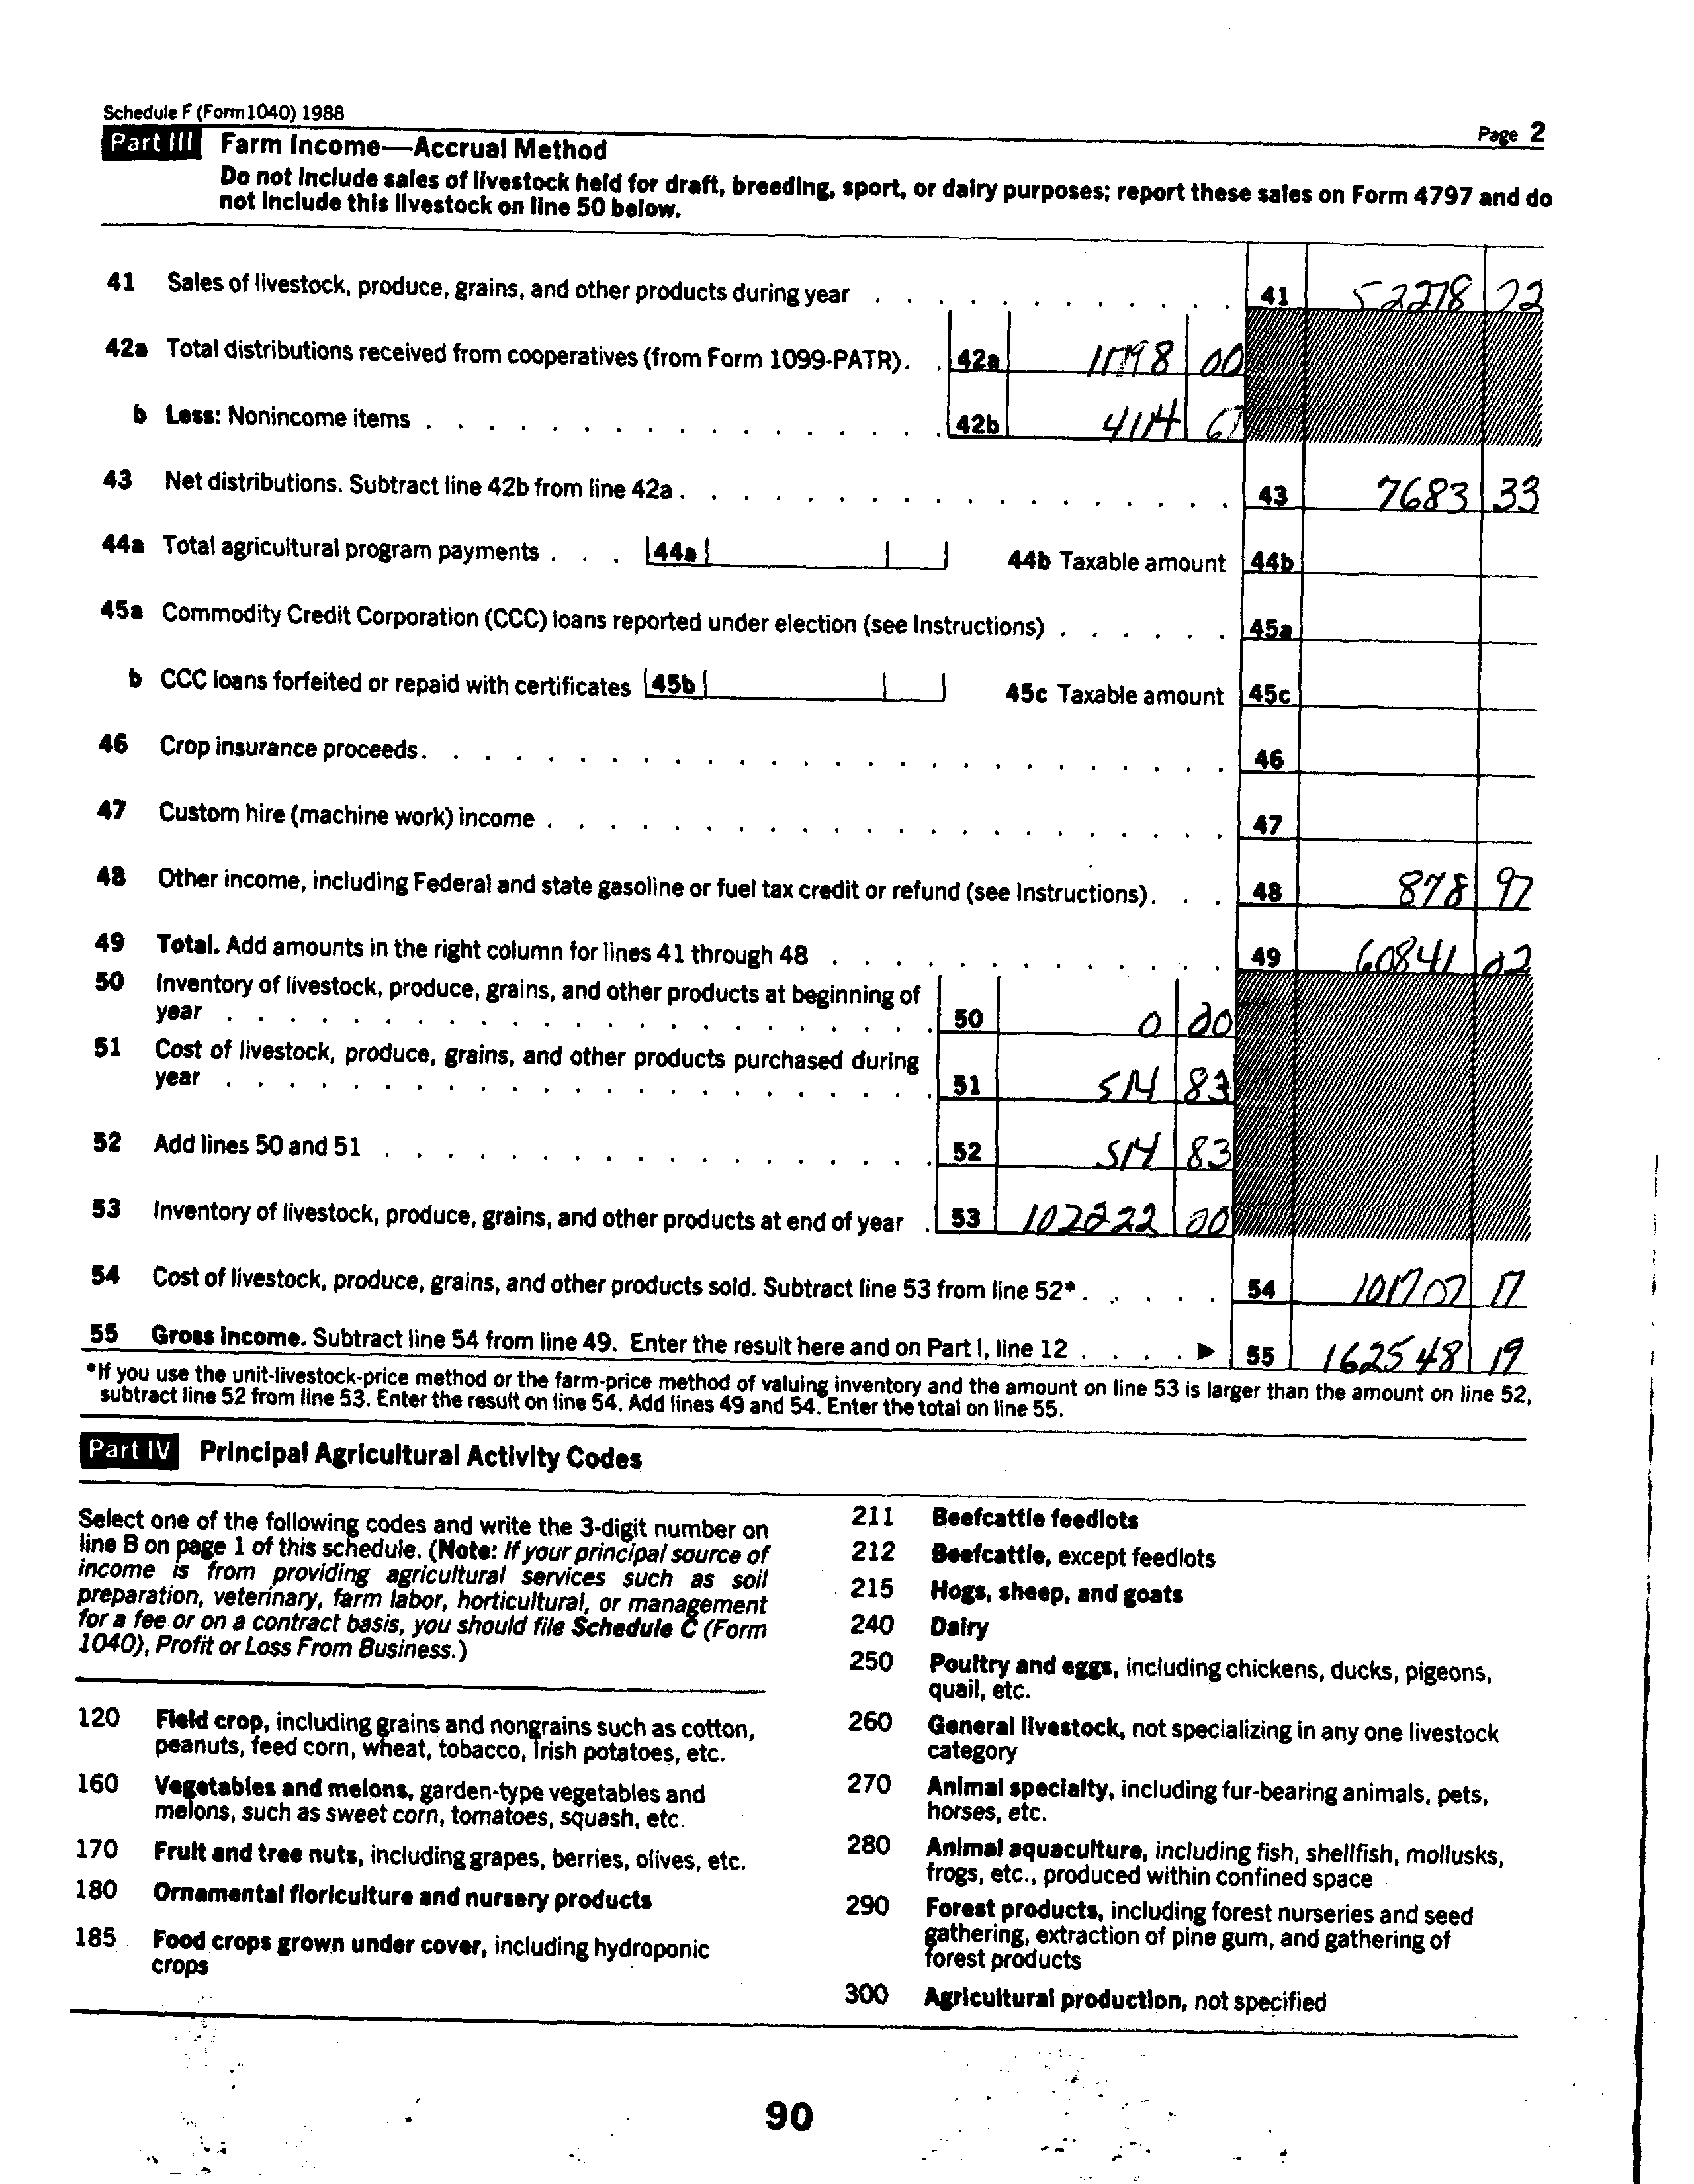 Schedule F (Form 1040) 1988
Page 2
Part III Farm Income—Accrual Method
Do not include sales of livestock held for draft, breeding, sport, or dairy purposes; report these sales on Form 4797 and do
not include this livestock on line 50 below.
41 Sales of livestock, produce, grains, and other products during year . . . . . . . . . . . . 41 52278 72
42a Total distributions received from cooperatives (from Form 1099-PATR) . . 42a 11798 00
b Less: Nonincome items . . . . . . . . . . . . . . . . . 42b 4114 67
43 Net distributions. Subtract line 42b from line 42a . . . . . . . . . . . . . . . . . . 43 7683 33
44a Total agricultural program payments . . . 44a 44b Taxable amount 44b
45a Commodity Credit Corporation (CCC) loans reported under election (see Instructions) . . . . . . 45a
b CCC loans forfeited or repaid with certificates 45b 45c Taxable amount 45c
46 Crop insurance proceeds . . . . . . . . . . . . . . . . . . . . . . . . . . 46
47 Custom hire (machine work) income . . . . . . . . . . . . . . . . . . . . . . 47
48 Other income, including Federal and state gasoline or fuel tax credit or refund (see Instructions) . . . 48 878 97
49 Total. Add amounts in the right column for lines 41 through 48 . . . . . . . . . . . . . 49 60841 02
50 Inventory of livestock, produce, grains, and other products at beginning of
year . . . . . . . . . . . . . . . . . . . . . . . 50 0 00
51 Cost of livestock, produce, grains, and other products purchased during
year . . . . . . . . . . . . . . . . . . . . . . . 51 514 83
52 Add lines 50 and 51 . . . . . . . . . . . . . . . . . . 52 514 83
53 Inventory of livestock, produce, grains, and other products at end of year . 53 102222 00
54 Cost of livestock, produce, grains, and other products sold. Subtract line 53 from line 52* . . . . . 54 101707 17
55 Gross income. Subtract line 54 from line 49. Enter the result here and on Part I, line 12 . . . . ▶ 55 162548 19
*If you use the unit-livestock-price method or the farm-price method of valuing inventory and the amount on line 53 is larger than the amount on line 52,
subtract line 52 from line 53. Enter the result on line 54. Add lines 49 and 54. Enter the total on line 55.
Part IV Principal Agricultural Activity Codes
Select one of the following codes and write the 3-digit number on
line B on page 1 of this schedule. (Note: If your principal source of
income is from providing agricultural services such as soil
preparation, veterinary, farm labor, horticultural, or management
for a fee or on a contract basis, you should file Schedule C (Form
1040), Profit or Loss From Business.)
120 Field crop, including grains and nongrains such as cotton,
peanuts, feed corn, wheat, tobacco, Irish potatoes, etc.
160 Vegetables and melons, garden-type vegetables and
melons, such as sweet corn, tomatoes, squash, etc.
170 Fruit and tree nuts, including grapes, berries, olives, etc.
180 Ornamental floriculture and nursery products
185 Food crops grown under cover, including hydroponic
crops
211 Beefcattle feedlots
212 Beefcattle, except feedlots
215 Hogs, sheep, and goats
240 Dairy
250 Poultry and eggs, including chickens, ducks, pigeons,
quail, etc.
260 General livestock, not specializing in any one livestock
category
270 Animal specialty, including fur-bearing animals, pets,
horses, etc.
280 Animal aquaculture, including fish, shellfish, mollusks,
frogs, etc., produced within confined space
290 Forest products, including forest nurseries and seed
gathering, extraction of pine gum, and gathering of
forest products
300 Agricultural production, not specified
90